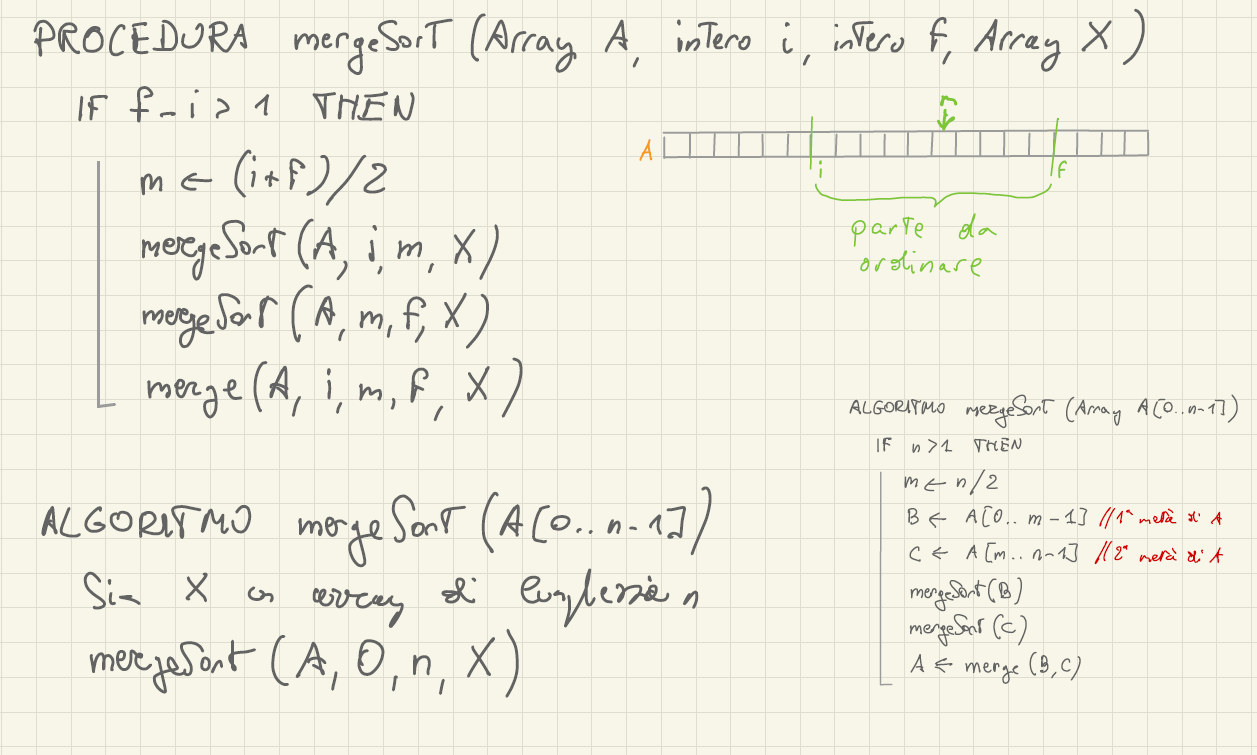 PROCEDURA mergeSort (Array A, intero i, intero f, Array X)
IF f-i > 1 THEN
m ← (i+f)/2
mergeSort (A, i, m, X)
mergeSort (A, m, f, X)
merge (A, i, m, f, X)
m
A
i
f
parte da
ordinare
ALGORITMO mergeSort (A[0..n-1])
Sia X un array di lunghezza n
mergeSort (A, 0, n, X)
ALGORITMO mergeSort (Array A[0..n-1])
IF n>1 THEN
m ← n/2
B ← A[0..m-1] //1ª metà di A
C ← A[m..n-1] //2ª metà di A
mergeSort (B)
mergeSort (C)
A ← merge (B,C)